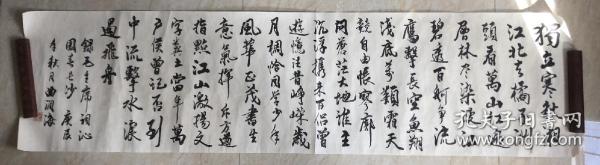 獨立寒秋湘
江北去橘子洲
頭看萬山紅遍
層林盡染漫江
碧透百舸爭流
鷹擊長空魚翔
淺底萬類霜天
競自由悵寥廓
問蒼茫大地誰主
沉浮攜來百侶曾
遊憶往昔崢嶸歲
月稠恰同學少年
風華正茂書生
意氣揮斥方遒
指點江山激揚文
字糞土當年萬
戶侯曾記否到
中流擊水浪
遏飛舟
錄毛主席詞沁
園春長沙 庚辰
年秋月
孔夫子旧书网